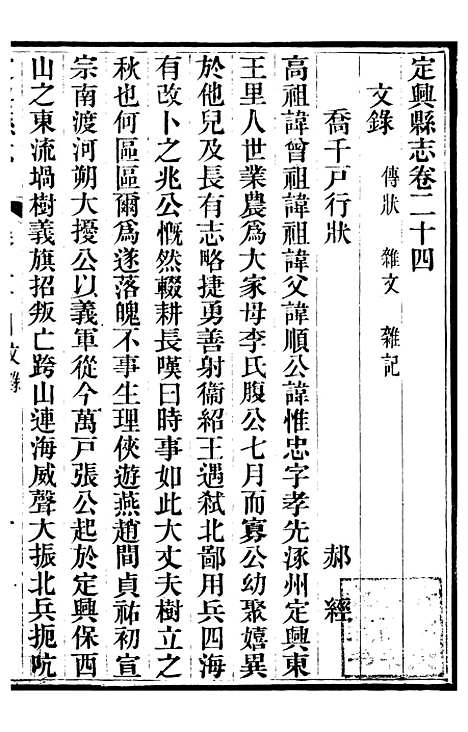 定興縣志卷二十四
文錄 傳狀 雜文 雜記
喬千戶行狀 郝經
高祖諱曾祖諱祖諱父諱順公諱惟忠字孝先涿州定興東
王里人世業農為大家母李氏腹公七月而寡公幼聚嬉異
於他兒及長有志略捷勇善射衞紹王遇弒北鄙用兵四海
有改卜之兆公慨然輟耕長嘆曰時事如此大丈夫樹立之
秋也何區區爾為遂落魄不事生理俠遊燕趙間貞祐初宣
宗南渡河朔大擾公以義軍從今萬戶張公起於定興保西
山之東流堝樹義旗招叛亡跨山連海威聲大振北兵扼吭